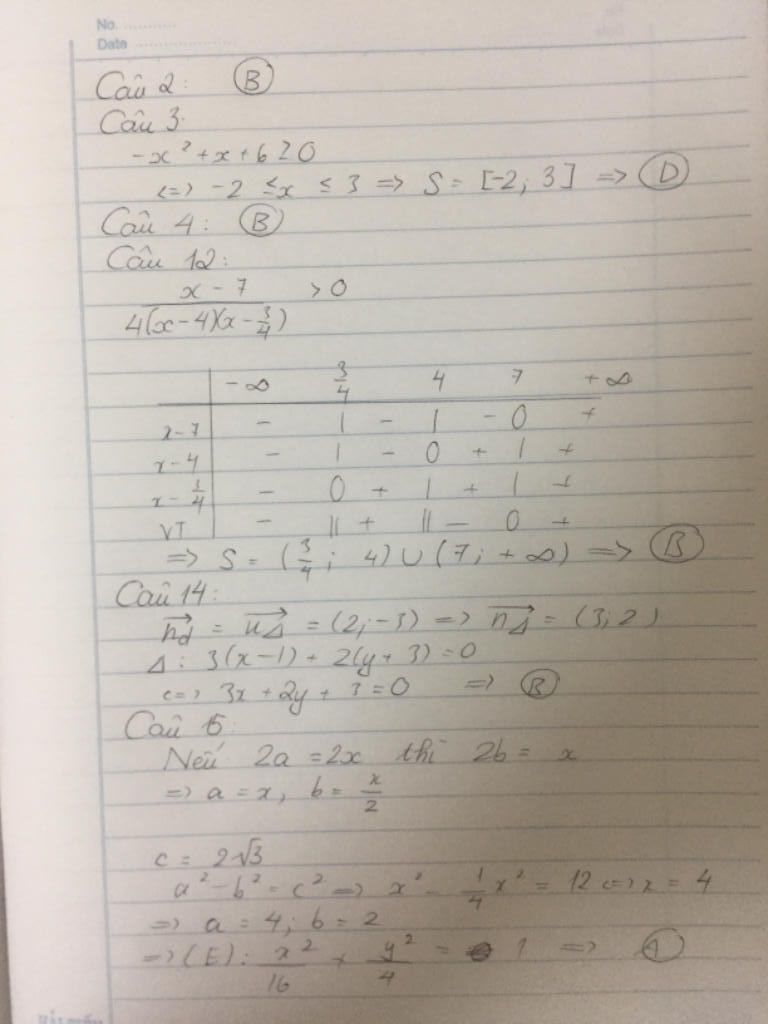 No. ............
Date ........................
Câu 2: B
Câu 3:
-x² + x + 6 ≥ 0
<=> -2 ≤ x ≤ 3 => S = [-2; 3] => D
Câu 4: B
Câu 12:
x - 7 > 0
4(x-4)(x - 3/4)
-∞ 3/4 4 7 +∞
x-7 - | - | - 0 +
x-4 - | - 0 + | +
x - 3/4 - 0 + | + | +
VT - || + || - 0 +
=> S = (3/4; 4) ∪ (7; +∞) => B
Câu 14:
n_d→ = u_Δ→ = (2; -3) => n_Δ→ = (3; 2)
Δ: 3(x-1) + 2(y+3) = 0
<=> 3x + 2y + 3 = 0 => B
Câu 15:
Nếu 2a = 2x thì 2b = x
=> a = x, b = x/2
c = 2√3
a² - b² = c² => x² - 1/4 x² = 12 <=> x = 4
=> a = 4; b = 2
=> (E): x²/16 + y²/4 = 1 => A